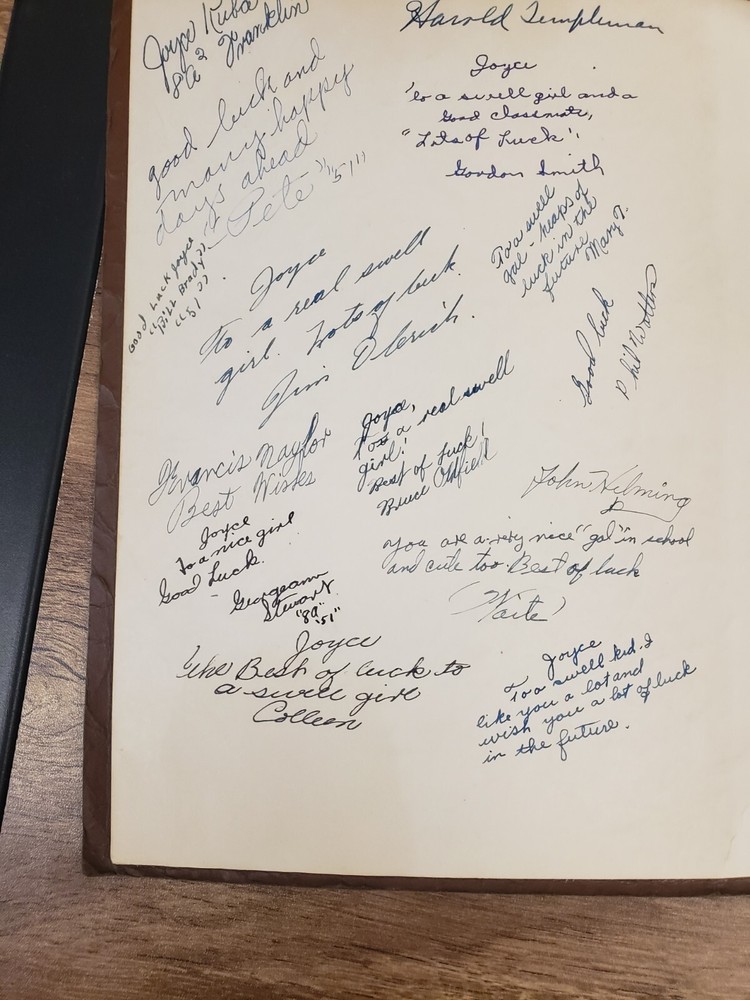 Joyce Kuba
8a2 Franklin
Harold Templeman
good luck and
many happy
days ahead
- Pete "51"
Joyce
To a swell girl and a
Good classmate,
"Lots of Luck"!
Gordon Smith
Good Luck Joyce
"Bizz Brady"
"51"
Joyce
To a real swell
girl. Lots of luck.
Jim
To a swell
gal - heaps of
luck in the
future
Mary T.
Good luck
Phil
Francis Naylor
Best Wishes
Joyce,
To a real swell
girl!
Best of Luck!
Bruce Oldfield
John
Joyce
To a nice girl
Good Luck.
Georgeann
Stewart
"8a"
"51"
you are a very nice "gal" in school
and cute too. Best of luck
(Waite)
Joyce
The Best of luck to
a swell girl
Colleen
Joyce
Too swell kid. I
like you a lot and
wish you a lot of luck
in the future.